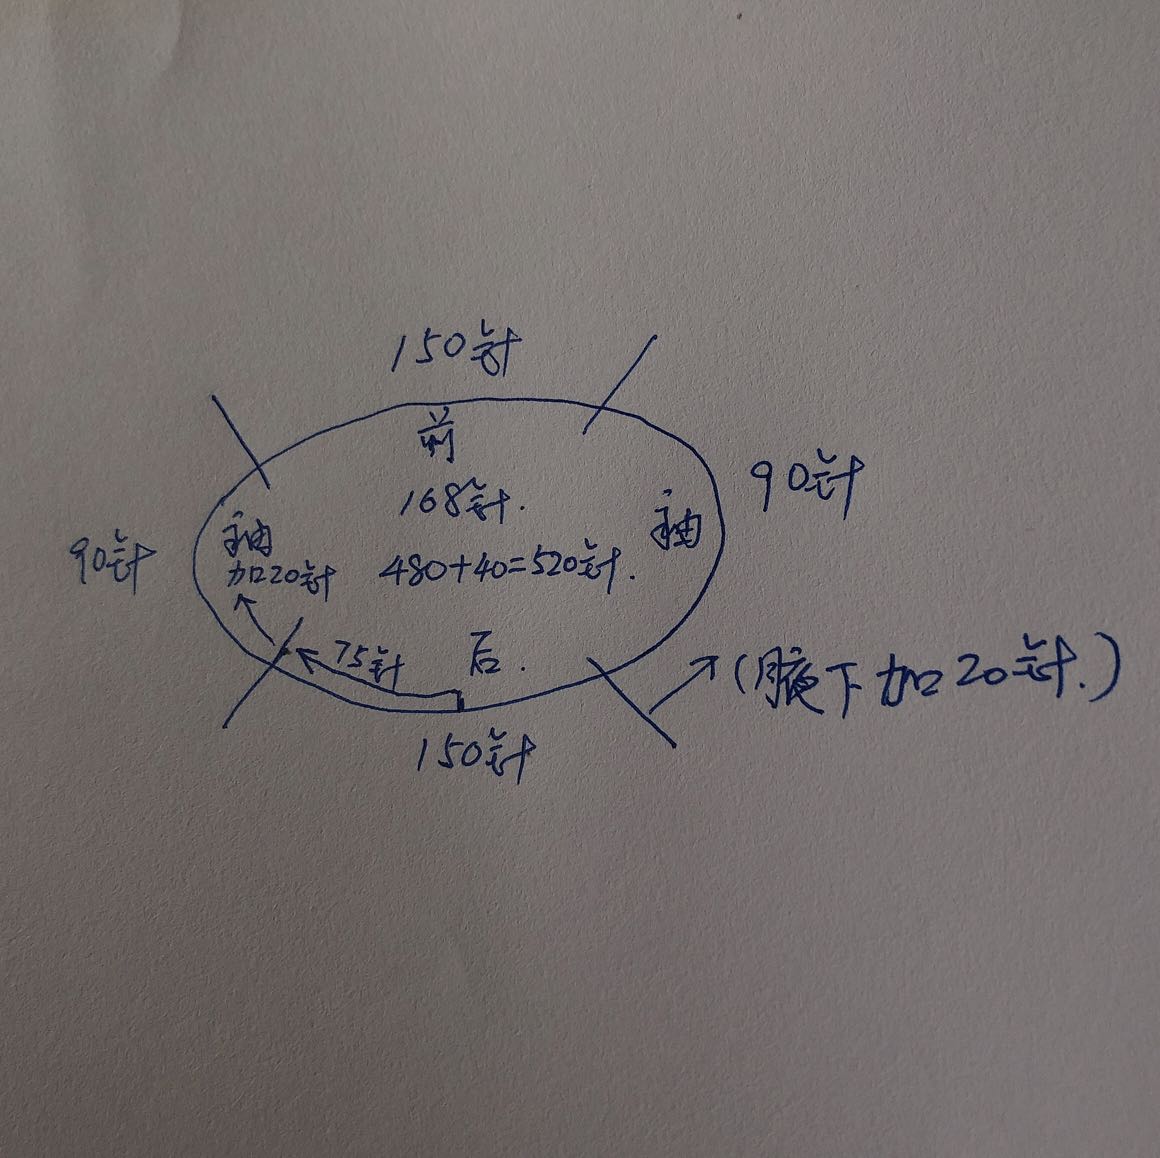 150针
前
90针
168针.
袖
袖
90针
加20针
480+40=520针.
75针
后.
(腋下加20针.)
150针